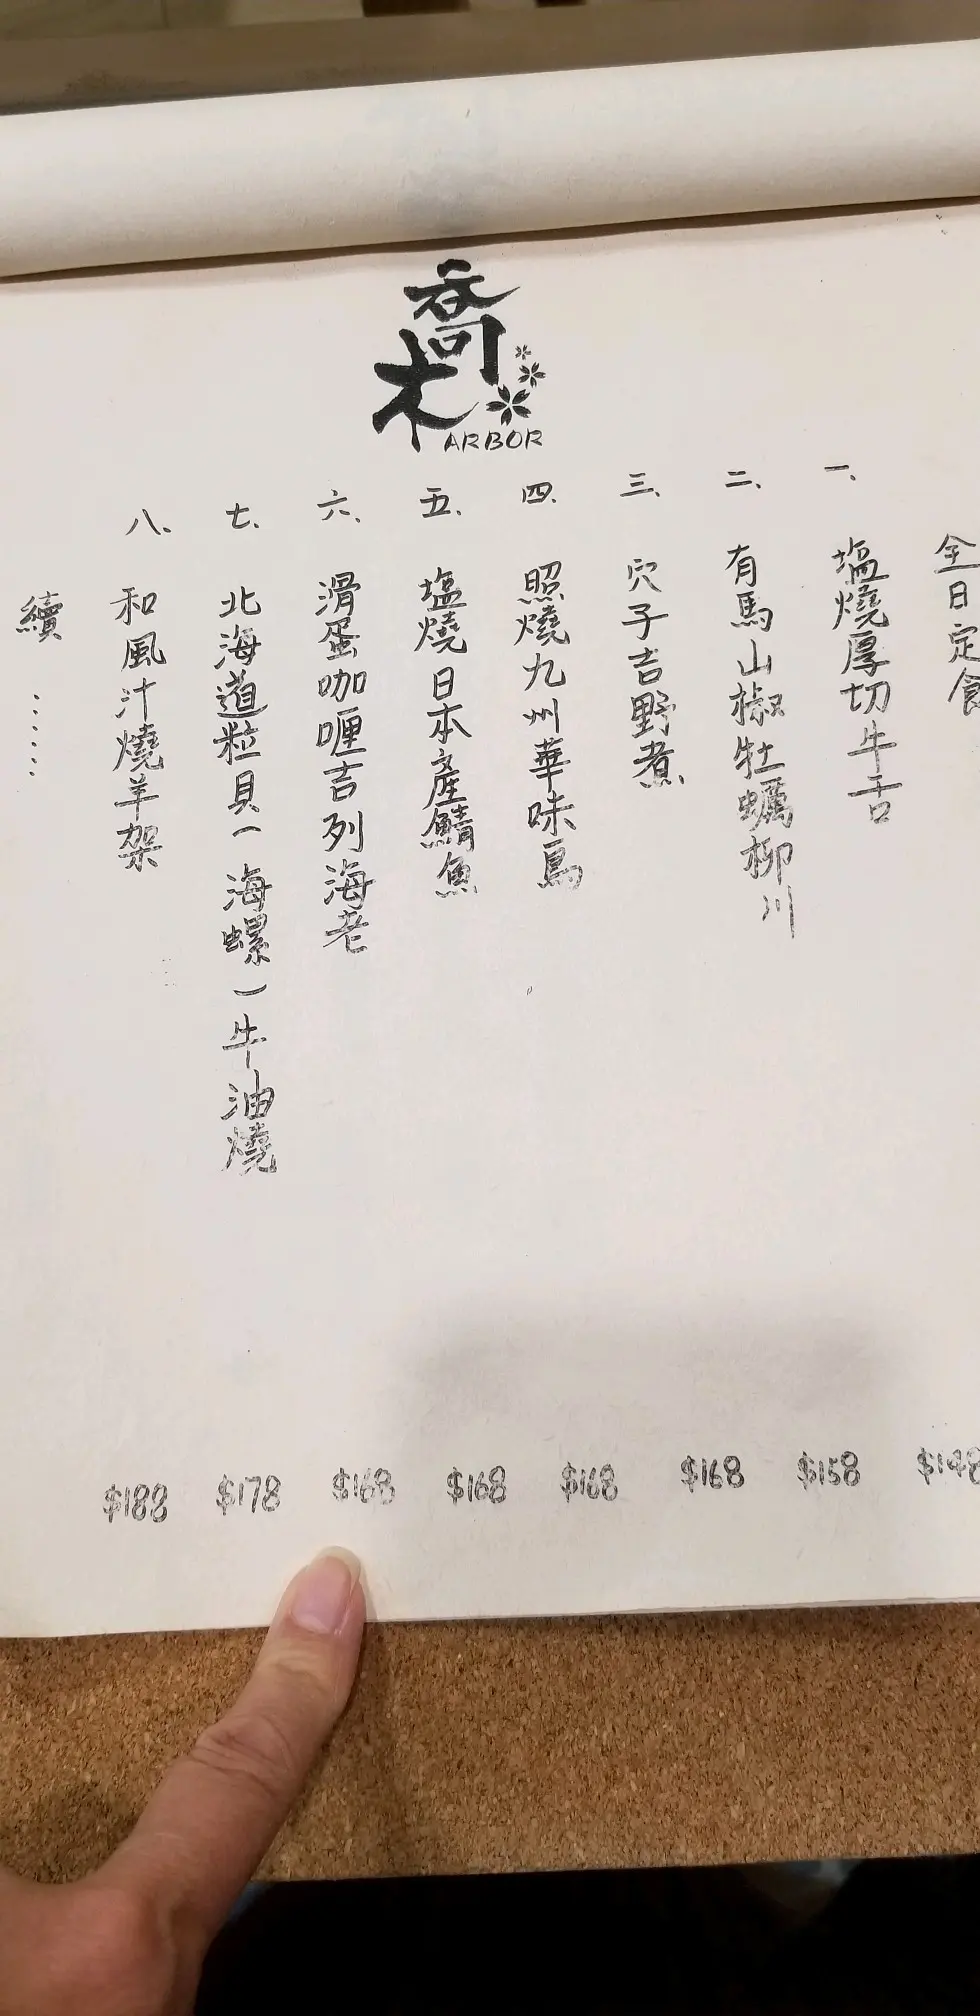 喬木
ARBOR
全日定食
一、塩燒厚切牛舌 $148
二、有馬山椒牡蠣柳川 $158
三、穴子吉野煮 $168
四、照燒九州華味鳥 $168
五、塩燒日本產鯖魚 $168
六、滑蛋咖喱吉列海老 $168
七、北海道粒貝(海螺)牛油燒 $178
八、和風汁燒羊架 $188
續……